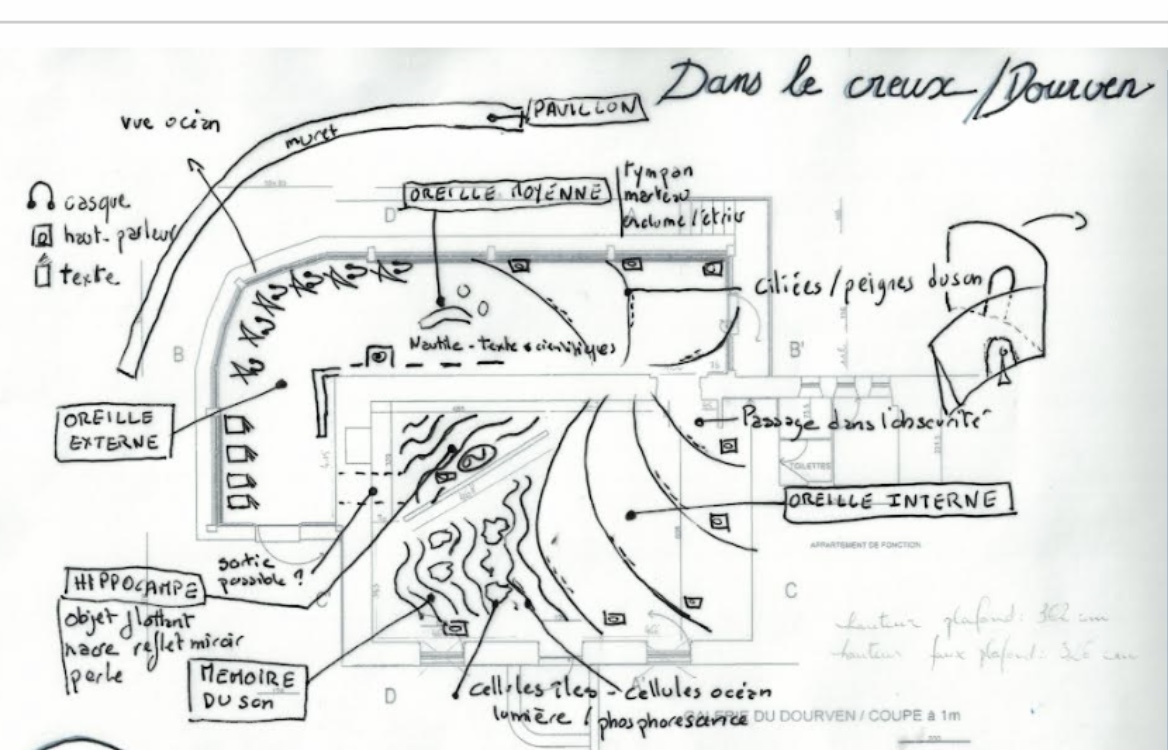 Dans le creux / Dourven
PAVILLON
vue océan
muret
casque
haut-parleur
texte
OREILLE MOYENNE
tympan
marteau
enclume l'étrier
D
ciliées / peignes du son
Nautile - textes scientifiques
B
B'
OREILLE
EXTERNE
Passage dans l'obscurité
TOILETTES
OREILLE INTERNE
APPARTEMENT DE FONCTION
sortie
possible ?
HIPPOCAMPE
objet flottant
nacre reflet miroir
perle
C
C
hauteur plafond: 302 cm
hauteur faux plafond:
MEMOIRE
DU son
D
cellules îles - cellules océan
lumière / phosphorescence
GALERIE DU DOURVEN / COUPE à 1m